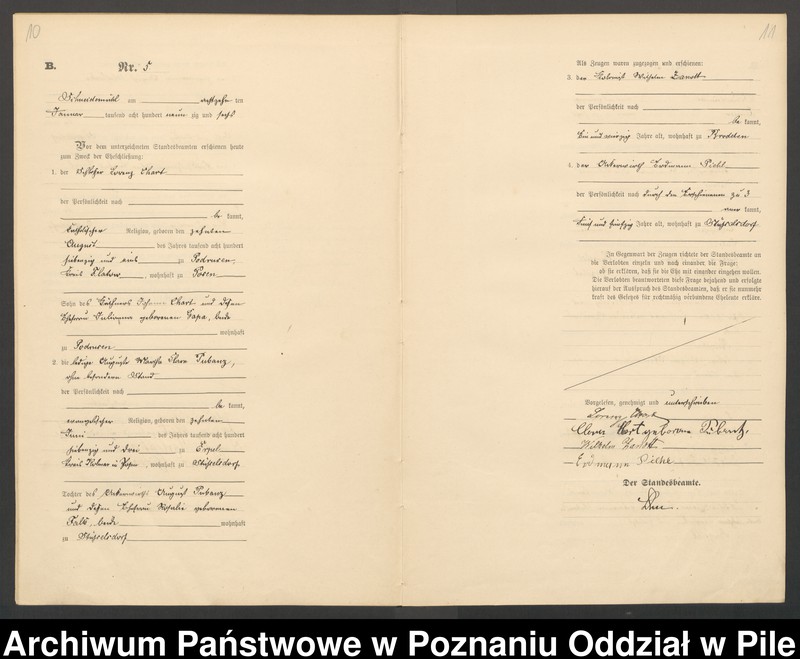 10
11
B.
Nr. 5
Schneidemühl am achtzehnten
Januar tausend acht hundert neunzig und sechs
Vor dem unterzeichneten Standesbeamten erschienen heute
zum Zweck der Eheschließung:
1. der Schlosser Lorenz Chart
der Persönlichkeit nach
bekannt,
katholischer Religion, geboren den zehnten
August des Jahres tausend acht hundert
siebenzig und eins zu Podrusen
Kreis Flatow, wohnhaft zu Posen
Sohn des Chart und dessen
Ehefrau Julianna geborenen, beide
wohnhaft
zu Podrusen
2. die ledige Auguste Martha Clara Tubanz,
ohne besonderen Stand
der Persönlichkeit nach
bekannt,
evangelischer Religion, geboren den zehnten
Juni des Jahres tausend acht hundert
siebenzig und drei zu Erpel
Kreis Kolmar in Posen, wohnhaft zu Stüsselsdorf
Tochter des Ackerwirth August Tubanz
und dessen Ehefrau Rosalie geborenen
beide wohnhaft
zu Stüsselsdorf
Als Zeugen waren zugezogen und erschienen:
3. der Wilhelm Zanott
der Persönlichkeit nach
bekannt,
und vierzig Jahre alt, wohnhaft zu Brodden
4. der Ackerwirth Erdmann Piehl
der Persönlichkeit nach durch den Erschienenen zu 3
anerkannt,
fünf und fünfzig Jahre alt, wohnhaft zu Stüsselsdorf
In Gegenwart der Zeugen richtete der Standesbeamte an
die Verlobten einzeln und nach einander die Frage:
ob sie erklären, daß sie die Ehe mit einander eingehen wollen.
Die Verlobten beantworteten diese Frage bejahend und erfolgte
hierauf der Ausspruch des Standesbeamten, daß er sie nunmehr
kraft des Gesetzes für rechtmäßig verbundene Eheleute erkläre.
Vorgelesen, genehmigt und unterschrieben
Lorenz Chart
geborene Tubanz.
Wilhelm Zanott
Erdmann Piehl
Der Standesbeamte.
Archiwum Państwowe w Poznaniu Oddział w Pile